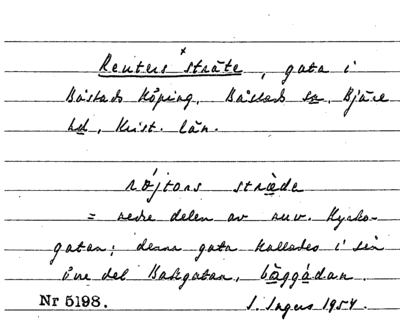 Reuters stræte, gata i
Båstads köping, Båstads sn, Bjäre
hd, Krist. län.
röjtors stræde
= nedre delen av nuv. Kyrko-
gatan; denna gata kallades i sin
övre del Bakgatan, båggádan.
Nr 5198.
S. Ingers 1954.